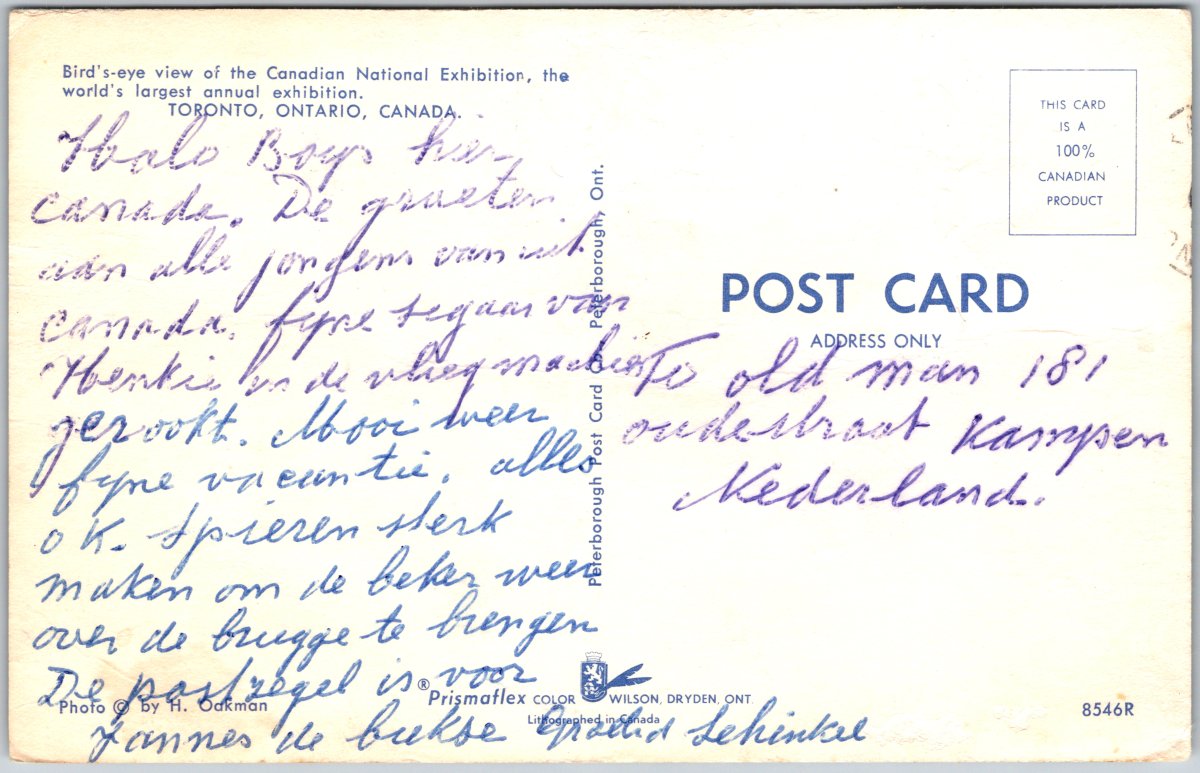 Bird's-eye view of the Canadian National Exhibition, the
world's largest annual exhibition.
TORONTO, ONTARIO, CANADA.
Halo Boys hier
canada. De groeten
aan alle jongens van uit
canada. fyne segaar van
Henkie in de vliegmachien
gerookt. Mooi weer
fyne vacantie. alles
OK. Spieren sterk
maken om de beker weer
over de brugge te brengen
De postzegel is voor
Jannes de
Schinkel
Peterborough Post Card Co. Peterborough, Ont.
THIS CARD
IS A
100%
CANADIAN
PRODUCT
POST CARD
ADDRESS ONLY
To old man 181
oudestraat Kampen
Nederland.
Photo © by H. Oakman
®Prismaflex COLOR WILSON, DRYDEN, ONT
Lithographed in Canada
8546R